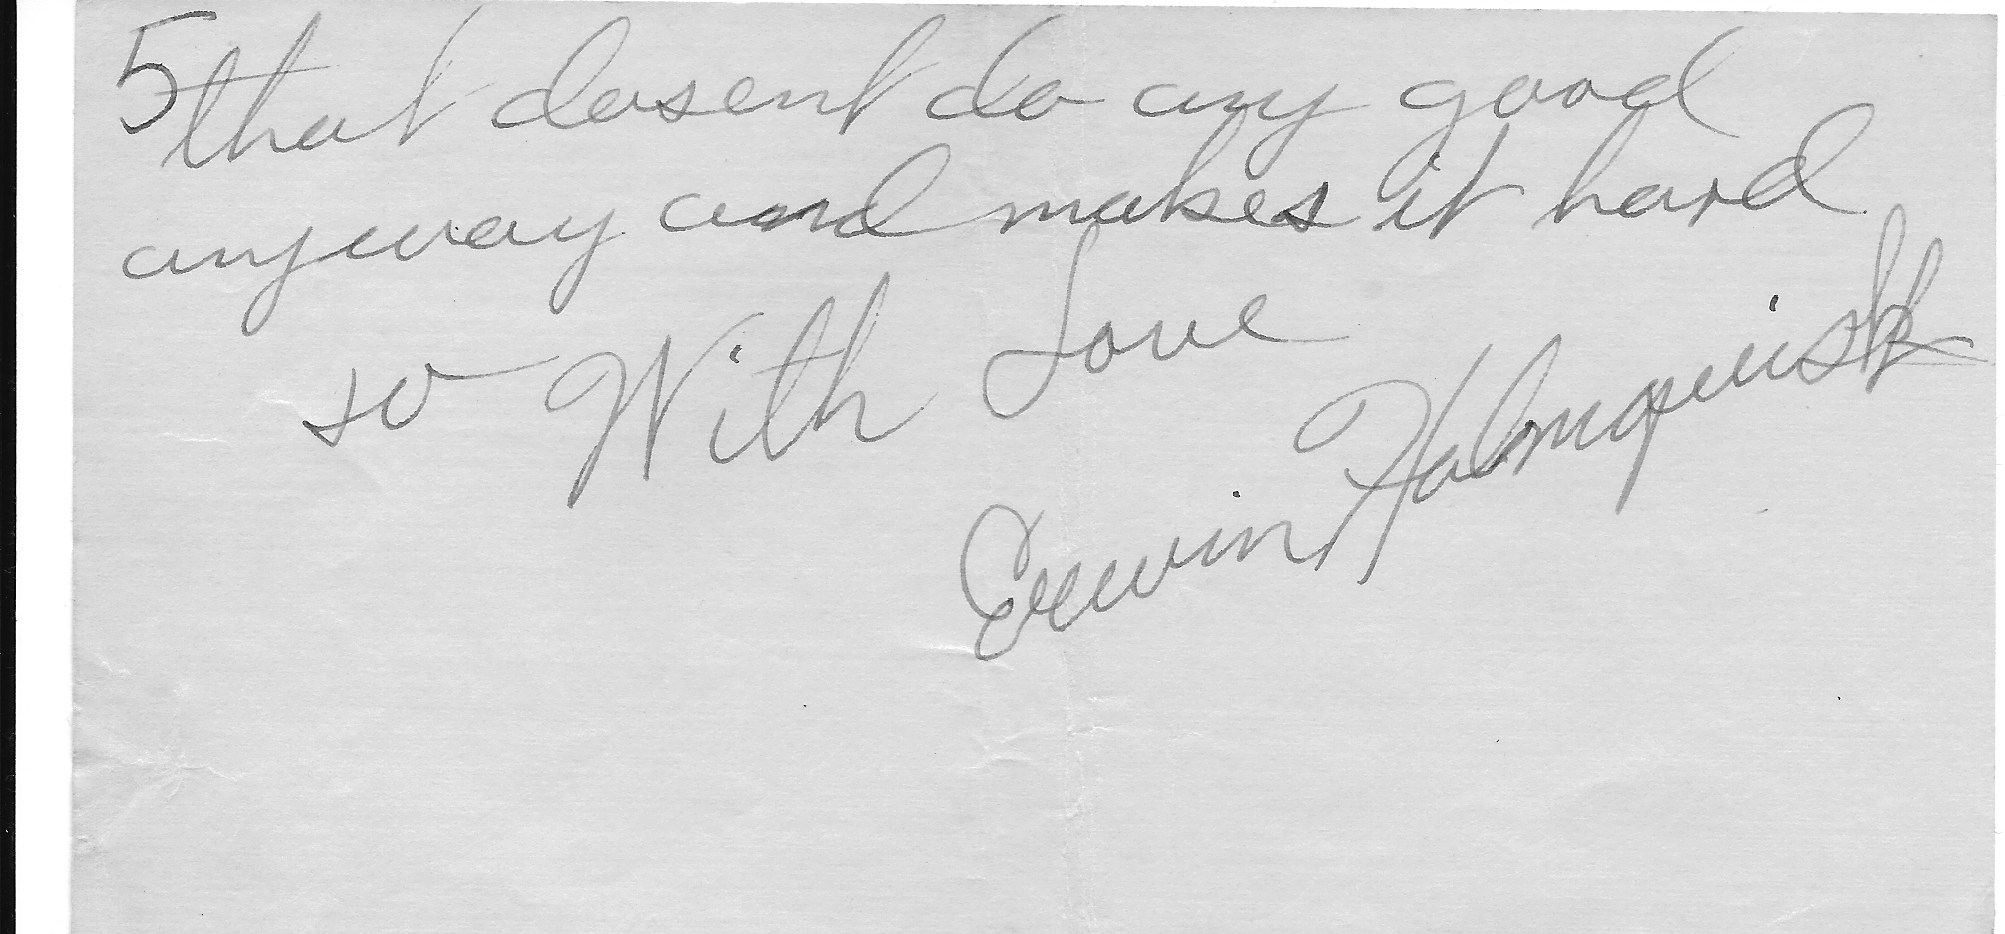 5
that dosent do any good
anyway and makes it hard
so With Love
Erwin Holmquist